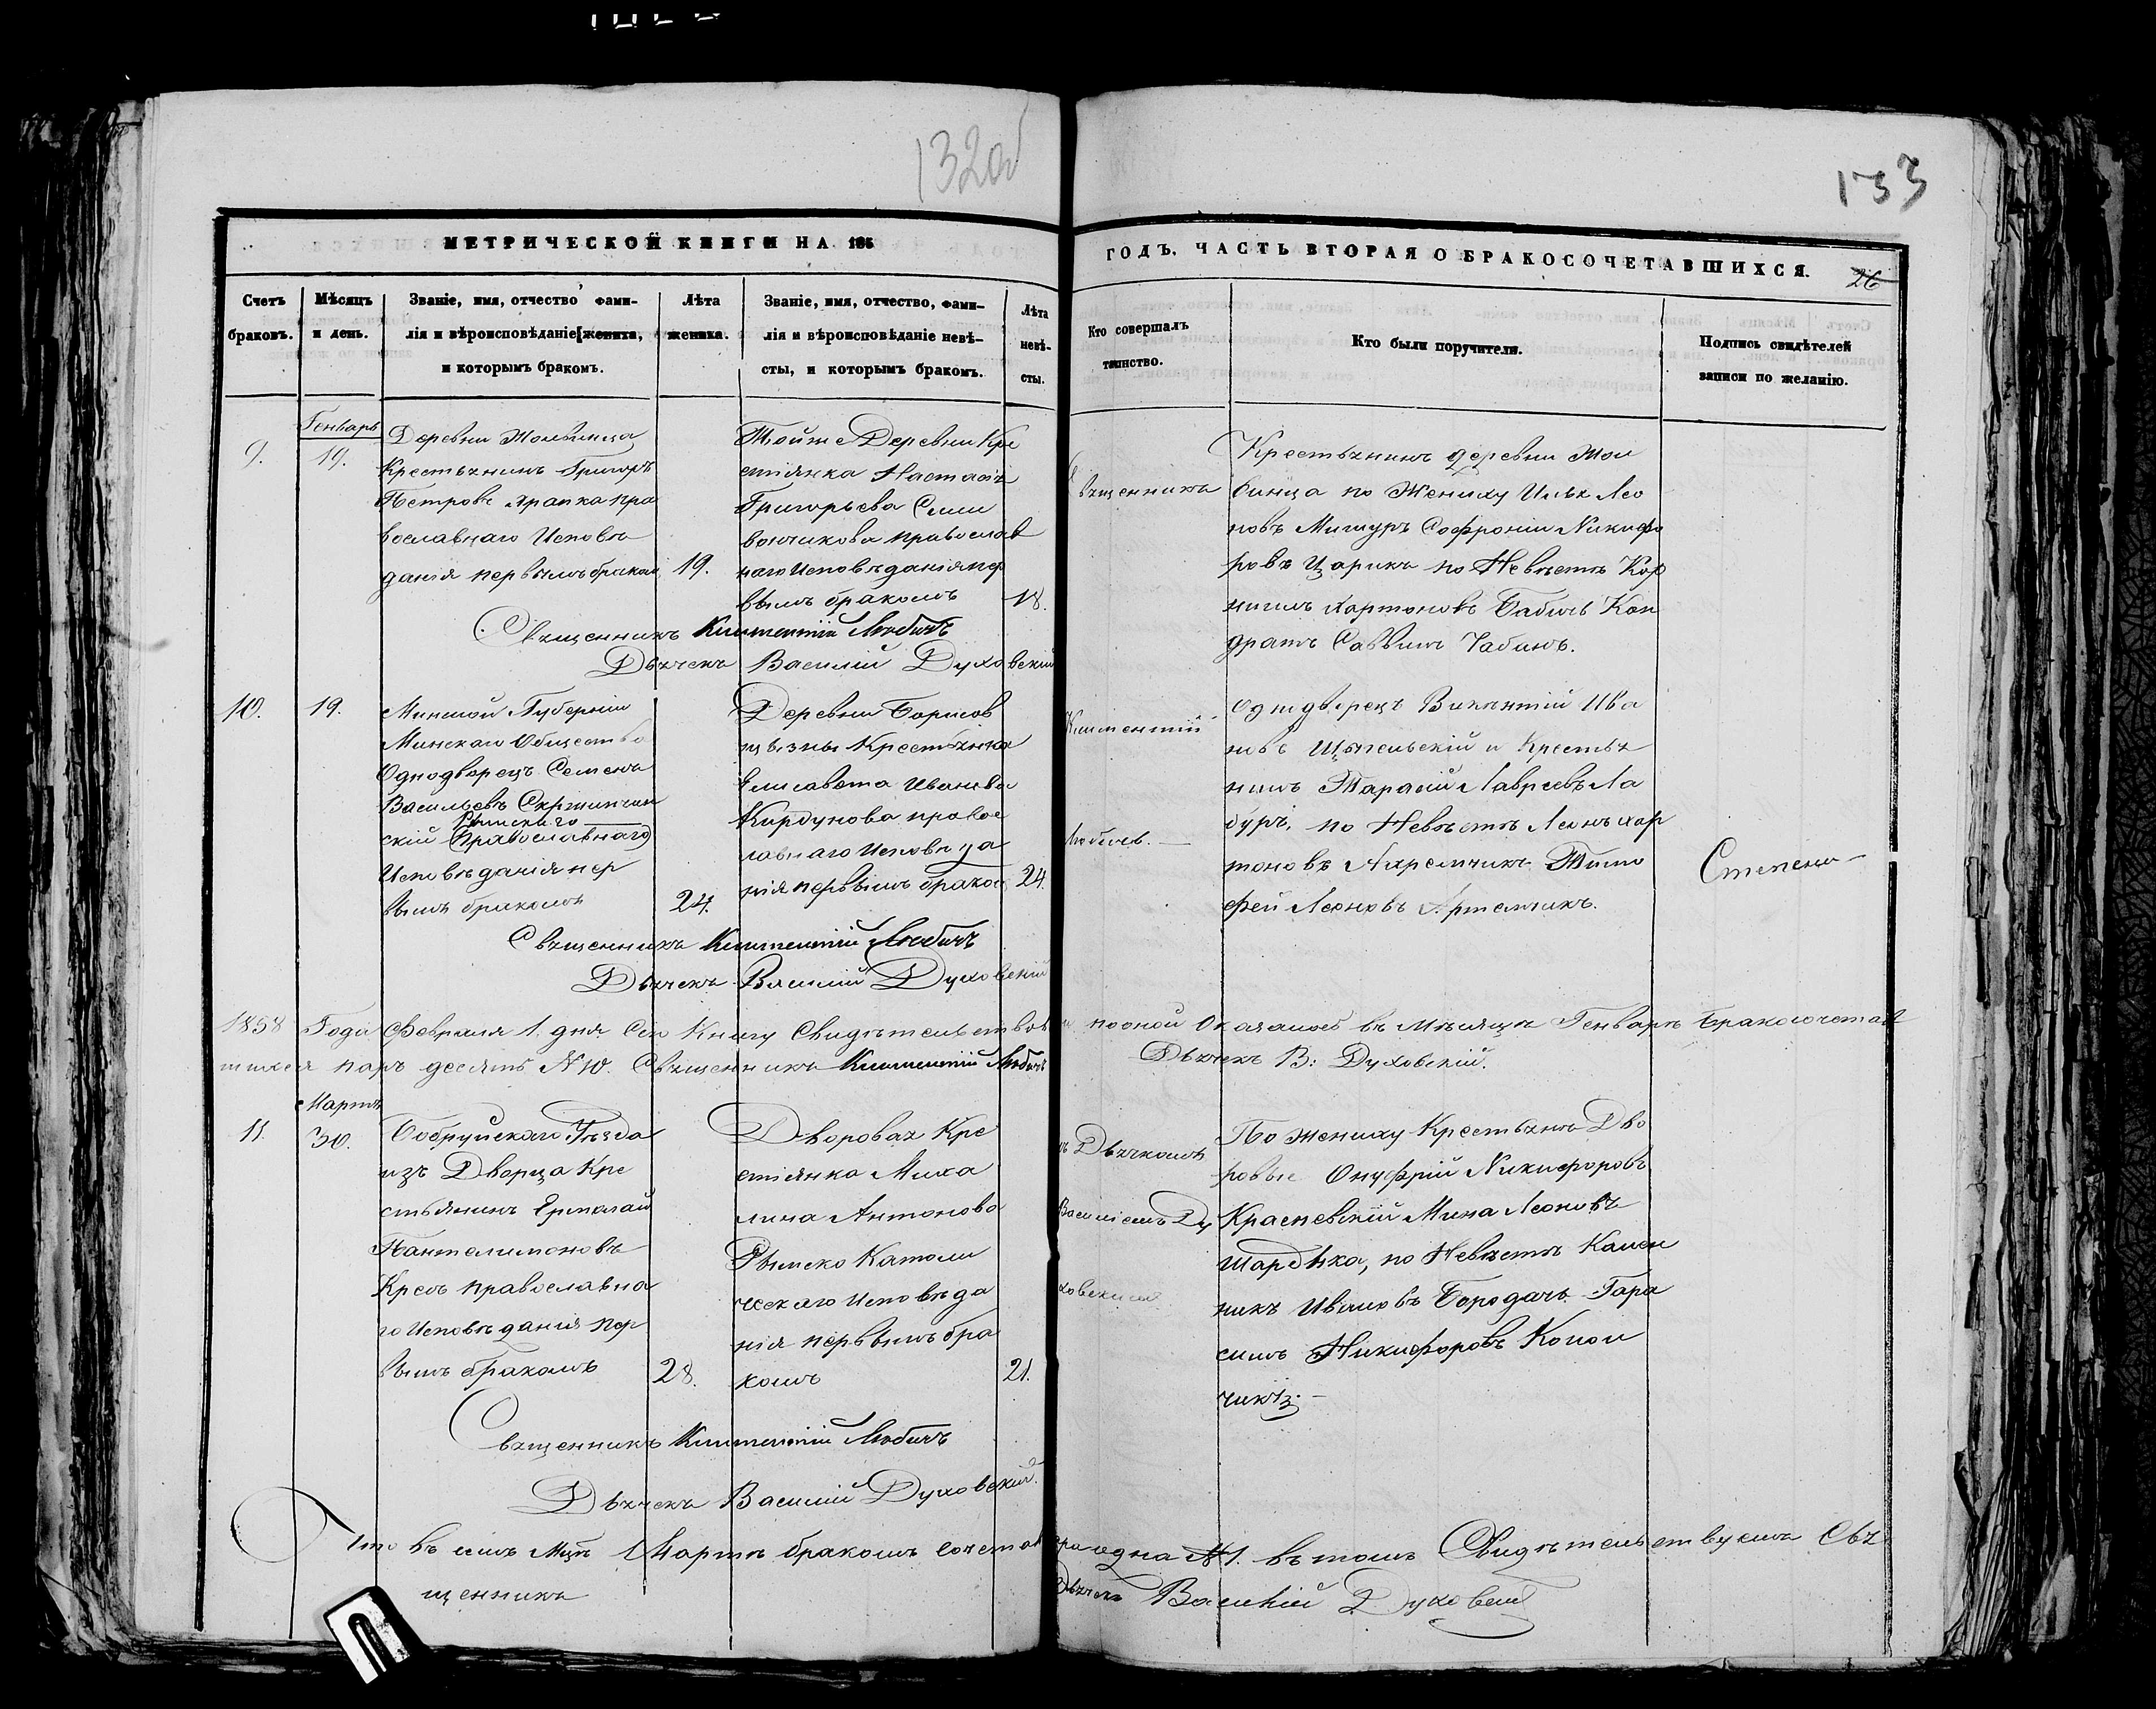 132об
133
МЕТРИЧЕСКОЙ КНИГИ НА 185
ГОДЪ. ЧАСТЬ ВТОРАЯ О БРАКОСОЧЕТАВШИХСЯ.
26
Счетъ браковъ.
Мѣсяцъ и день.
Званіе, имя, отчество фами-
лія и вѣроисповѣданіе жениха,
и которымъ бракомъ.
Лѣта
жениха.
Званіе, имя, отчество, фами-
лія и вѣроисповѣданіе невѣ-
сты, и которымъ бракомъ.
Лѣта
невѣ-
сты.
Кто совершалъ
таинство.
Кто были поручители.
Подпись свидѣтелей
записи по желанію.
9.
Генварь
19.
Деревни
Крестьянинъ Григоръ
Петровъ пра
вославнаго Исповѣ
данія первымъ бракомъ
19.
Тойже Деревни Кре
стіянка Настасія
Григорьева
православ
наго Исповѣданія пер
вымъ бракомъ
18.
Священникъ
Крестьянинъ деревни
по Жениху Илья Лео
новъ Мигуръ Софроній Никифо
ровъ Царикъ по Невѣстѣ Кор
нилъ Хартоновъ Кон
дратъ Саввинъ
Священникъ Климентій Любичъ
Дьячекъ Василій Духовскій
10.
19.
Минской Губерніи
Минскаго Общество
Однодворецъ Семенъ
Васильевъ
Римскаго
скій (Православнаго)
Исповѣданія пер
вымъ бракомъ
24.
Деревни Борисов
щизны Крестьянка
Елисавета Иванова
Кирдунова правос
лавнаго Исповѣда
нія первымъ браком
24.
Климентій
Любичъ.
Однодворецъ Викентій Ива
новъ и Крестья
нинъ Тарасій Лавріевъ Ла
буръ, по Невѣстѣ Леонъ Хар
тоновъ Тимо
фей Леоновъ Артемчикъ.
Степени
Священникъ Климентій Любичъ
Дьячекъ Василій Духовскій
1858 Года Февраля 1. дня Сею Книгу Свидѣтельствов по оной Оказалось въ Мѣсяцѣ Генварѣ бракосочетав
шихся паръ десять N 10. Священникъ Климентій Любичъ Дьячекъ В: Духовскій.
11.
Мартъ
30.
Бобруйскаго Уѣзда
изъ Дворца Кре
стьянинъ Ермолай
Пантелимоновъ
православна
го Исповѣданія пер
вымъ бракомъ
28.
Дворовая Кре
стіянка Миха
лина Антонова
Римско Католи
ческаго Исповѣда
нія первымъ бра
комъ
21.
ъ Дьячкомъ
Василіемъ Ду
ховскимъ
По жениху Крестьянъ Дво
ровые Онуфрій Никифоровъ
Мина Леоновъ
по Невѣстѣ Камен
никъ Ивановъ Бородачъ Гара
симъ Никифоровъ
чикъ.
Священникъ Климентій Любичъ
Дьячекъ Василій Духовскій.
Что въ семъ Мцѣ Мартѣ бракомъ сочетал пара одна N 1. въ томъ Свидѣтельствуемъ Свя
щенникъ Дьячекъ Василій Духовскій